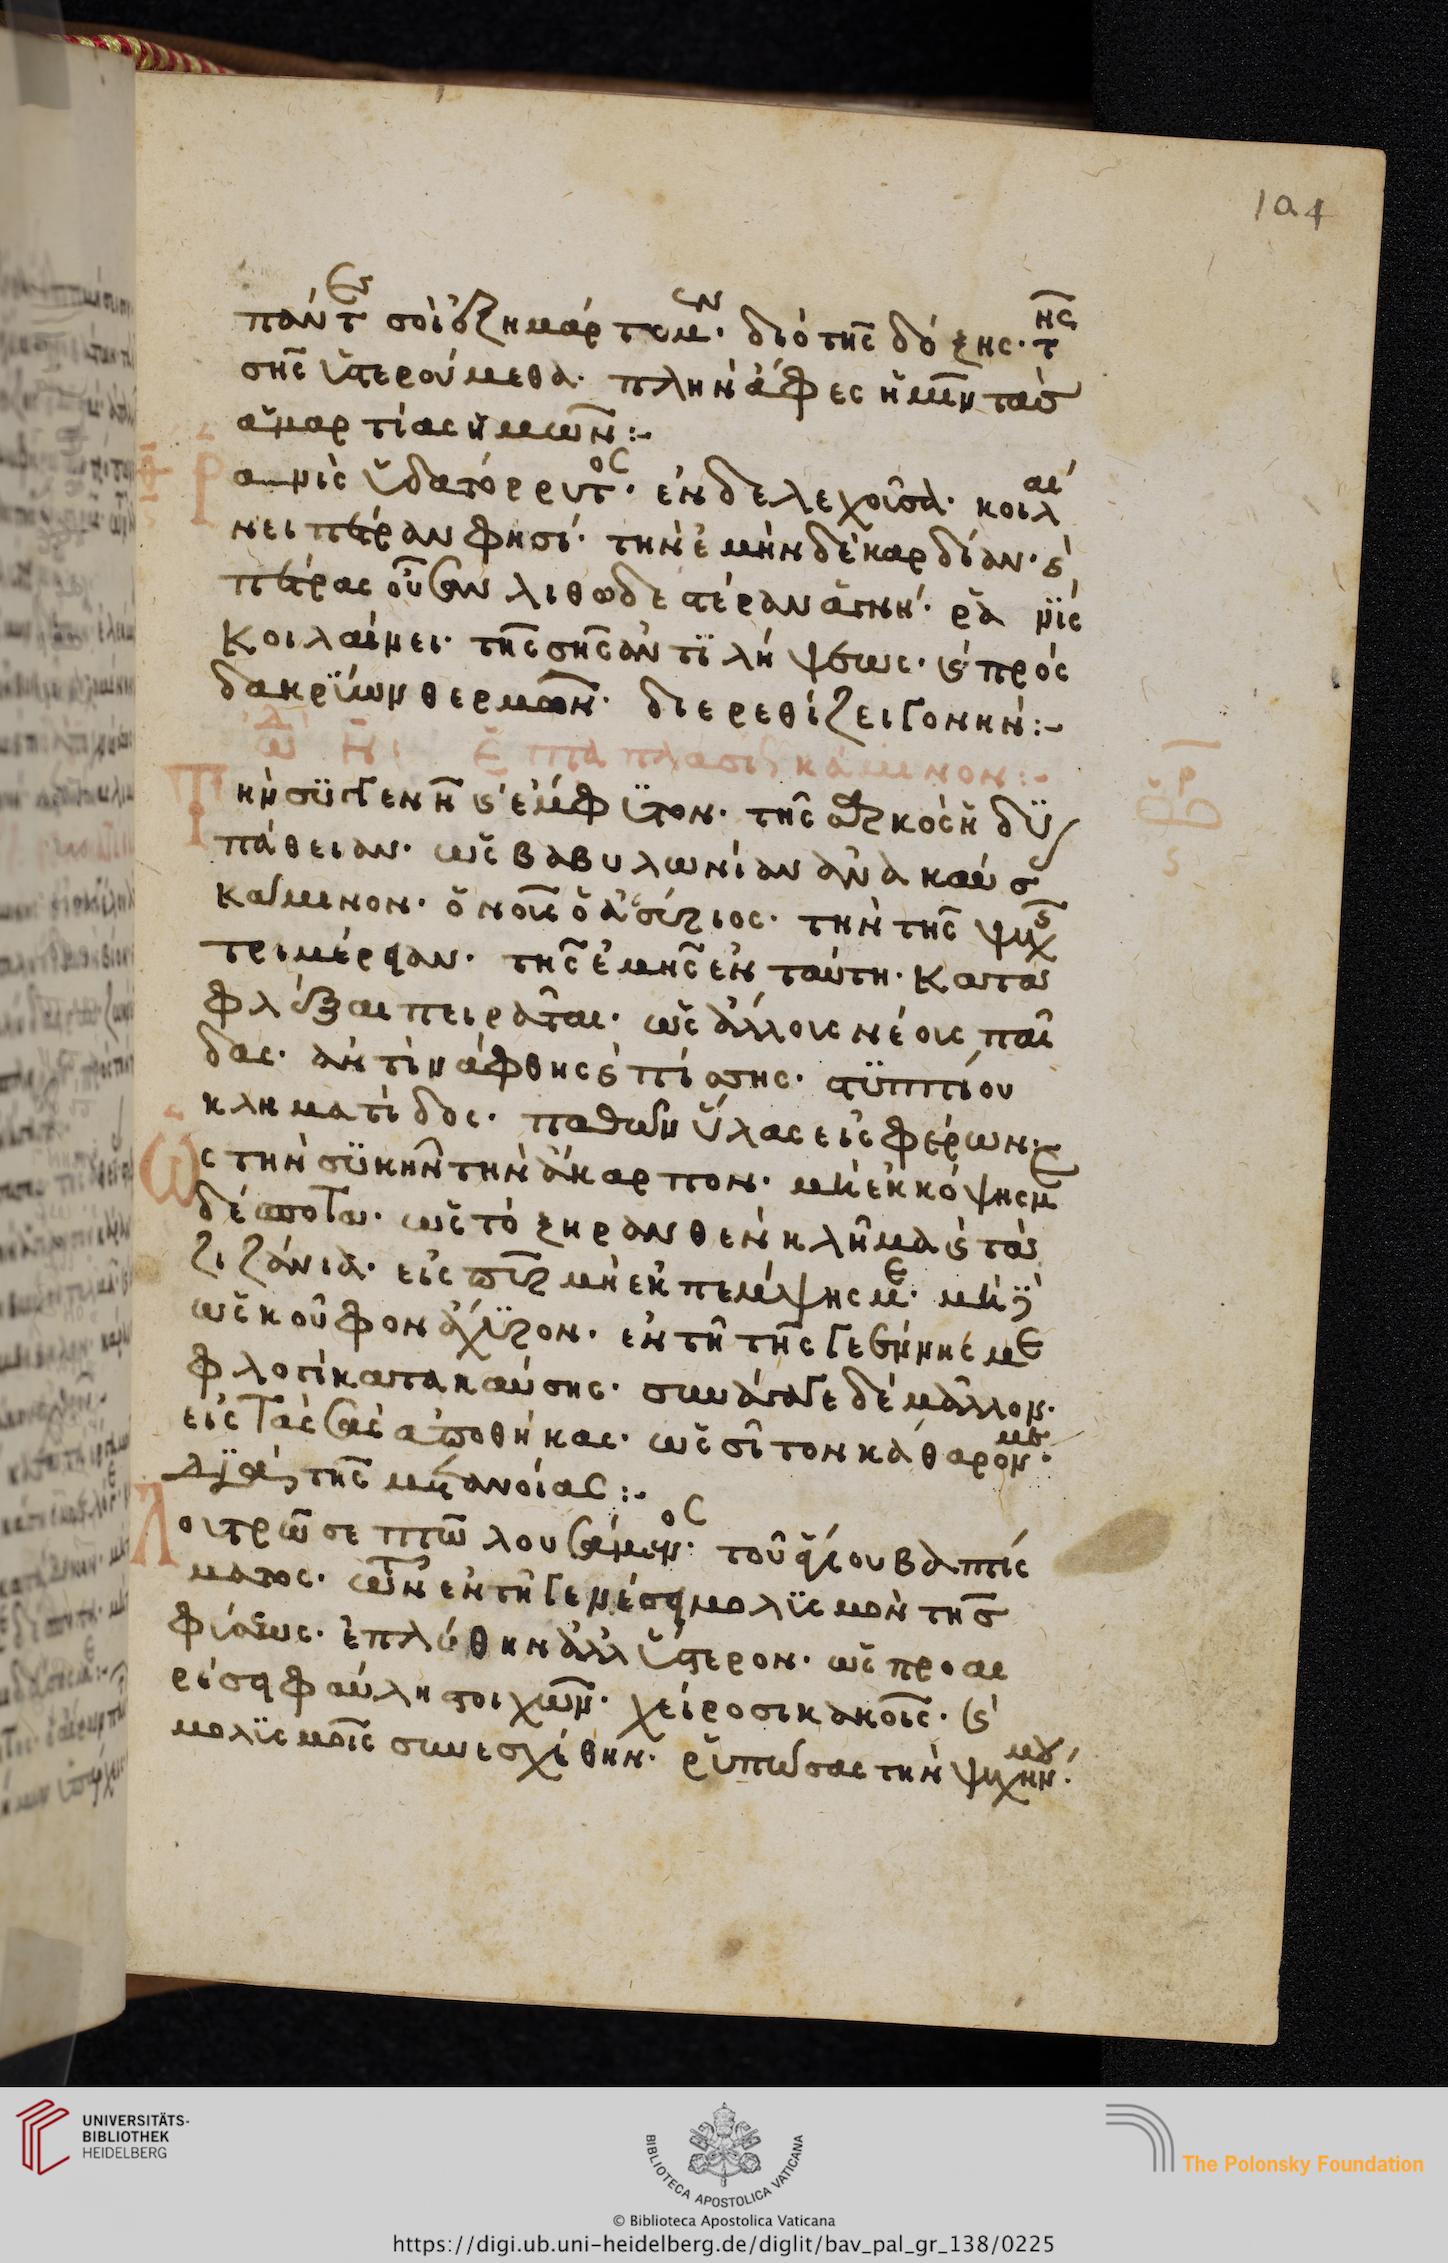 194
πάντες σοὶ ἐξημάρτομεν· διὸ τῆς δόξης· τῆς
σῆς ὑστερούμεθα· πλὴν ἄφες ἡμῖν τὰς
ἁμαρτίας ἡμῶν:-
Ῥανὶς ὑδατόρρυτος· ἐνδελεχοῦσα· κοιλαί
νει πέτραν φησί· τὴν ἐμὴν δὲ καρδίαν· καὶ
πέτρας οὖσαν λιθωδεστέραν
κοιλαίνει· τῆς σῆς ἀντιλήψεως· καὶ πρὸς
δακρύων θερμῶν· διερεθίζει γονήν:-
ἑπταπλασίως κάμινον:-
Τὴν συγγενῆ καὶ ἔμφυτον· τῆς σαρκὸς ἡδυ
πάθειαν· ὡς βαβυλωνίαν ἀνακαύσας
κάμινον· ὁ νοῦς ὁ ἀσύριος· τὴν τῆς ψυχῆς
τριμέρειαν· τῆς ἐμῆς ἐν ταύτῃ· κατα
φλέξαι πειρᾶται· ὡς ἄλλους νέους παῖ
δας· ἀντὶ νάφθης καὶ πίσσης· στυππίου
κληματίδος· παθῶν ὕλας εἰσφέρων:-
Ὡς τὴν συκῆν τὴν ἄκαρπον· μὴ ἐκκόψης με
δέσποτα· ὡς τὸ ξηρανθὲν κλῆμα καὶ τὰ
ζιζάνια· εἰς πῦρ μὴ ἐκπέμψης με·
ὡς κοῦφον ἄχυρον· ἐν τῇ τῆς γεέννης με
φλογὶ κατακαύσης· συνάγαγε δὲ μᾶλλον·
εἰς τὰς σὰς ἀποθήκας· ὡς σῖτον καθαρόν με·
τῆς μετανοίας:-
Λουτρῶ σεπτῶ λουσάμενος· τοῦ θείου βαπτίς
ματος· ἐν τῇ γενέσει μολυσμὸν τῆς
φύσεως· ἐπλύθην ἀλλ' ὕστερον· ὡς προαι
ρέσει φαύλη στοιχῶν· χείροσι κακοῖς· καὶ
μολυσμοῖς συνεσχέθην· ῥυπώσας τὴν ψυχήν μου·
UNIVERSITÄTS-
BIBLIOTHEK
HEIDELBERG
BIBLIOTECA APOSTOLICA VATICANA
The Polonsky Foundation
© Biblioteca Apostolica Vaticana
https://digi.ub.uni-heidelberg.de/diglit/bav_pal_gr_138/0225